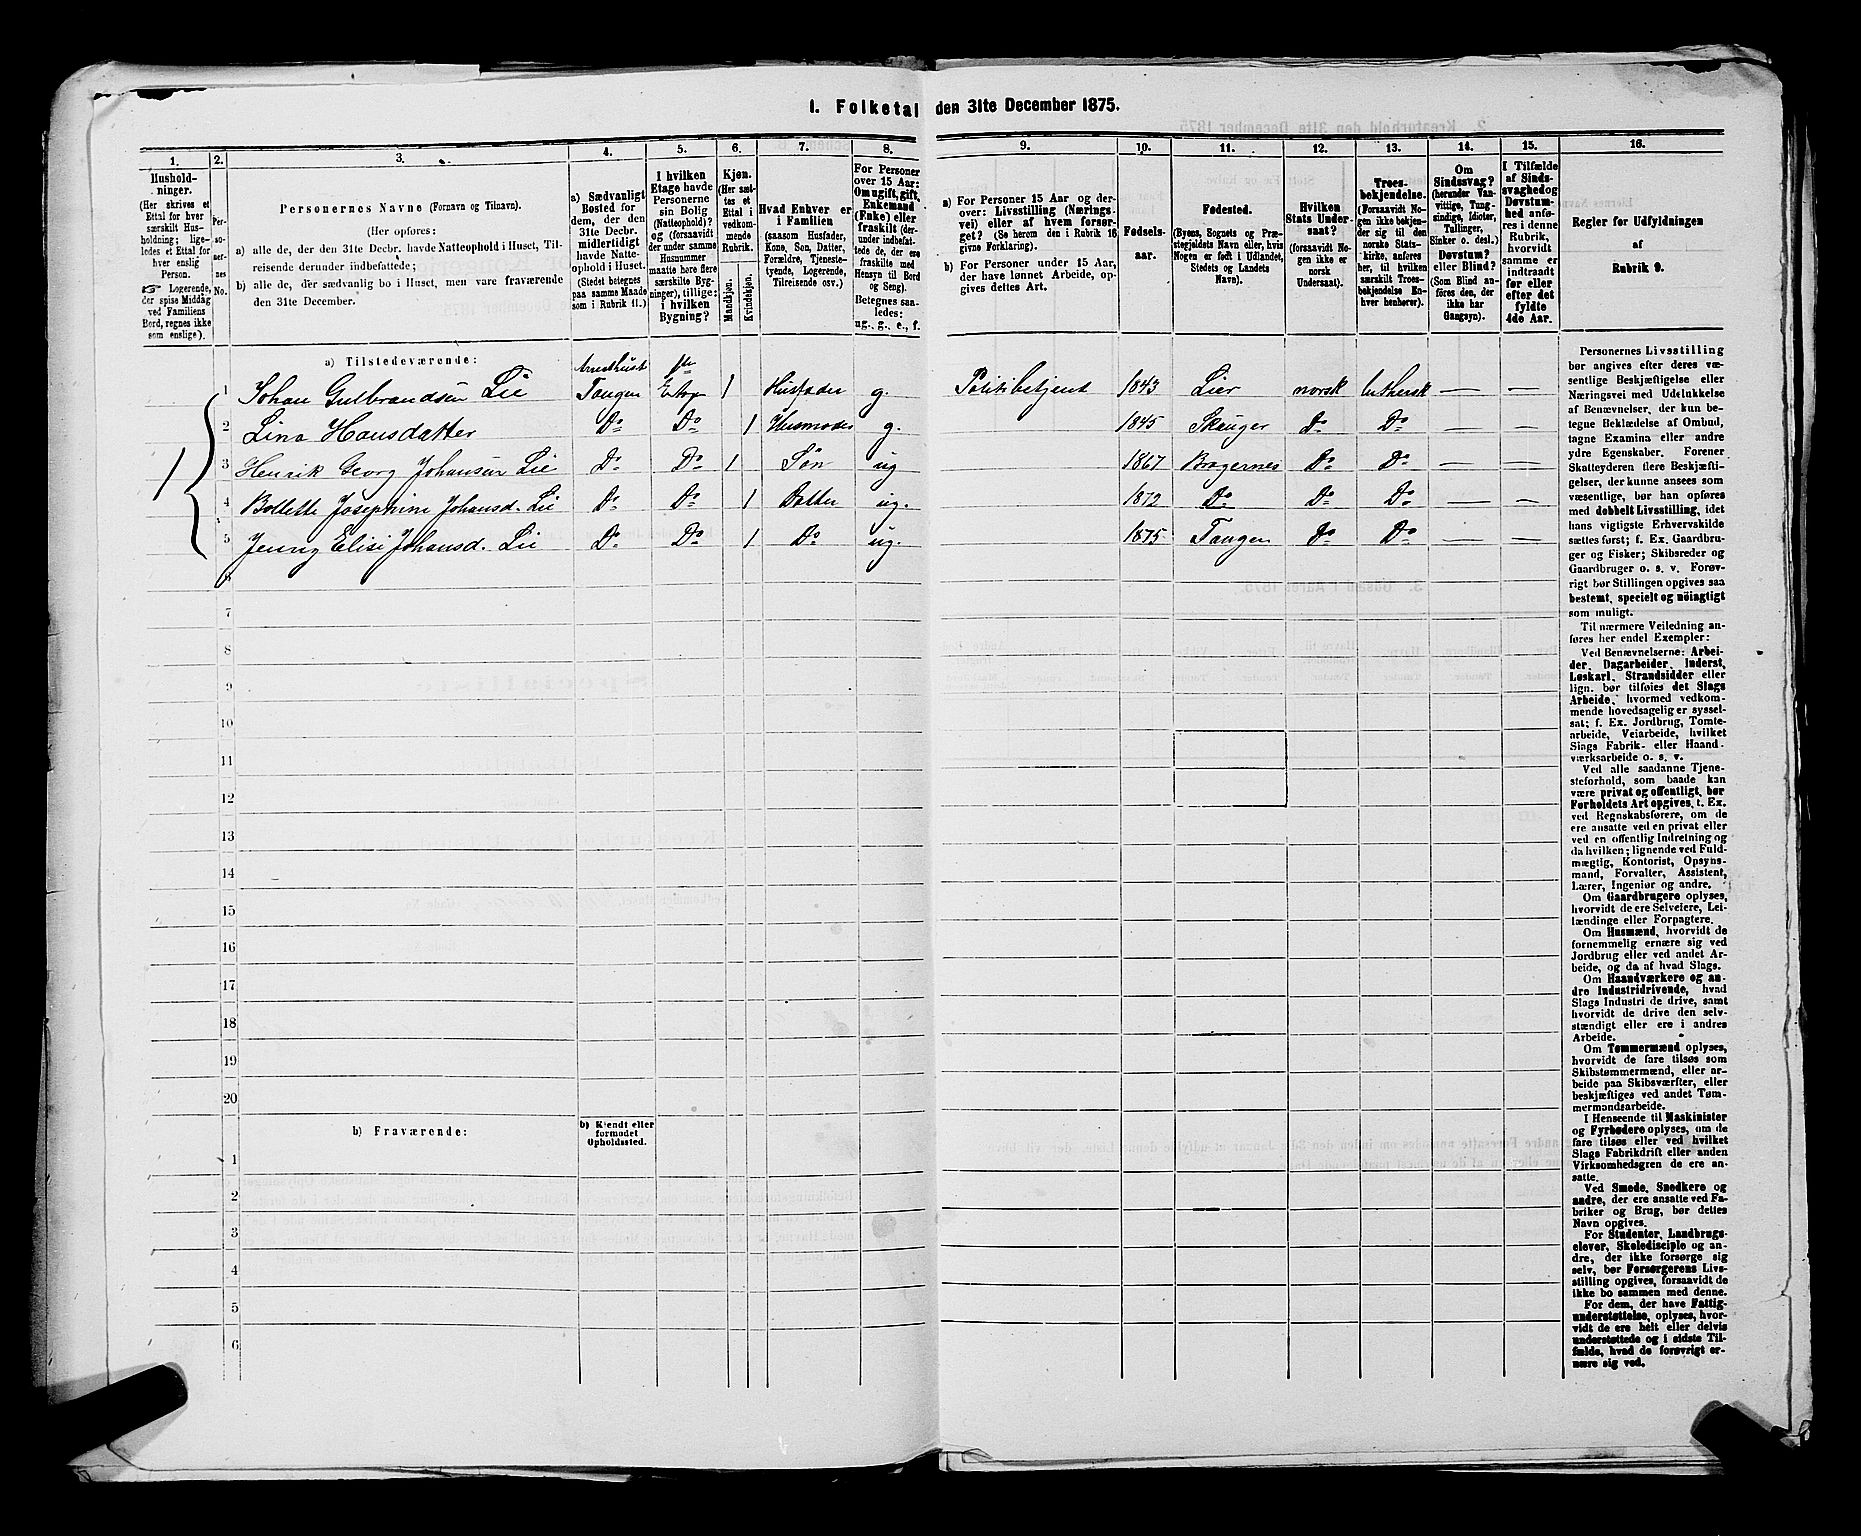 1. Folketal den 31te December 1875.
1.
Hushold-
ninger.
(Her skrives et
Ettal for hver
særskilt Hus-
holdning; lige-
ledes et Ettal for
hver enslig
Person.
☞ Logerende,
der spise Middag
ved Familiens
Bord, regnes ikke
som enslige).
2.
Per-
so-
ner-
nes
No.
3.
Personernes Navne (Fornavn og Tilnavn).
(Her opføres:
a) alle de, der den 31te Decbr. havde Natteophold i Huset, Til-
reisende derunder indbefattede;
b) alle de, der sædvanlig bo i Huset, men vare fraværende
den 31te December.
4.
a) Sædvanligt
Bosted for
dem, der den
31te Decbr.
midlertidigt
havde Natte-
ophold i Huset.
(Stedet betegnes
paa samme Maade
som i Rubrik 11.)
5.
I hvilken
Etage havde
Personerne
sin Bolig
(Natteophold)?
og (forsaavidt
der under samme
Husnummer
maatte høre flere
særskilte Byg-
ninger), tillige:
i hvilken
Bygning?
6.
Kjøn.
(Her sæt-
tes et
Ettal i
vedkom-
mende
Rubrik.
Mandkjøn.
Kvindekjøn.
7.
Hvad Enhver er
i Familien
(saasom Husfader,
Kone, Søn, Datter,
Forældre, Tjeneste-
tyende, Logerende,
Tilreisende osv.)
8.
For Personer
over 15 Aar:
Om ugift, gift,
Enkemand
(Enke) eller
fraskilt (der-
under indbefat-
tede de, der ere
fraskilte med
Hensyn til Bord
og Seng).
Betegnes saa-
ledes:
ug., g., e., f.
9.
a) For Personer 15 Aar og der-
over: Livsstilling (Nærings-
vei) eller af hvem forsør-
get? (Se herom den i Rubrik 16
givne Forklaring).
b) For Personer under 15 Aar,
der have lønnet Arbeide, op-
gives dettes Art.
10.
Fødsels-
aar.
11.
Fødested.
(Byens, Sognets og Præ-
stegjeldets Navn eller, hvis
Nogen er født i Udlandet,
Stedets og Landets
Navn).
12.
Hvilken
Stats Under-
saat?
(forsaavidt No-
gen ikke er
norsk
Undersaat).
13.
Troes-
bekjendelse.
(Forsaavidt No-
gen ikke bekjen-
der sig til den
norske Stats-
kirke, anføres
her, til hvilken
særskilt Troes-
bekjendelse En-
hver henhører).
14.
Om
Sindssvag?
(herunder Van-
vittige, Tung-
sindige, Idioter,
Tullinger,
Sinker o. desl.)
Døvstum?
eller Blind?
(Som Blind an-
føres den, der
ikke har
Gangsyn).
15.
I Tilfælde
af Sinds-
svaghed og
Døvstum-
hed anfø-
res i denne
Rubrik,
hvorvidt
samme er
indtraadt
før eller
efter det
fyldte
4de Aar.
16.
Regler for Udfyldningen
af
Rubrik 9.
a) Tilstedeværende:
1 Johan Gulbrandsen Lie Tangen 1ste Etage 1 Husfader g. Politibetjent 1843 Lier norsk luthersk — —
2 Lina Hansdatter Do Do 1 Husmoder g. 1845 Skouger Do Do — —
1 3 Henrik Georg Johansen Lie Do Do 1 Søn ug 1867 Bragernes Do Do — —
4 Bollette Josephine Johansd. Lie Do Do 1 Datter ug. 1872 Do Do Do — —
5 Jenny Elisi Johansd. Lie Do Do 1 Do ug. 1875 Tangen Do Do — —
6
7
8
9
10
11
12
13
14
15
16
17
18
19
20
b) Fraværende:
b) Kjendt eller
formodet
Opholdssted.
1
2
3
4
5
6
Personernes Livsstilling
bør angives efter deres væ-
sentlige Beskjæftigelse eller
Næringsvei med Udelukkelse
af Benævnelser, der kun be-
tegne Beklædelse af Ombud,
tagne Examina eller andre
ydre Egenskaber. Forener
Skatteyderen flere Beskjæfti-
gelser, der kunne ansees som
væsentlige, bør han opføres
med dobbelt Livsstilling, idet
hans vigtigste Erhvervskilde
sættes først; f. Ex. Gaardbru-
ger og Fisker; Skibsreder og
Gaardbruger o. s. v. Forøv-
rigt bør Stillingen opgives saa
bestemt, specielt og nöiagtigt
som muligt.
Til nærmere Veiledning an-
føres her endel Exempler:
Ved Benævnelserne: Arbei-
der, Dagarbeider, Inderst,
Løskarl, Strandsidder eller
lign. bør tilføies det Slags
Arbeide, hvormed vedkom-
mende hovedsagelig er syssel-
sat; f. Ex. Jordbrug, Tomte-
arbeide, Veiarbeide, hvilket
Slags Fabrik- eller Haand-
værksarbeide o. s. v.
Ved alle saadanne Tjene-
steforhold, som baade kan
være privat og offentligt, bør
Forholdets Art opgives, t. Ex.
ved Regnskabsførere, om de
ere ansatte ved en privat eller
ved en offentlig Indretning og
da hvilken; lignende ved Fuld-
mægtig, Kontorist, Opsyns-
mand, Forvalter, Assistent,
Lærer, Ingeniør og andre.
Om Gaardbrugere oplyses,
hvorvidt de ere Selveiere, Lei-
lændinge eller Forpagtere.
Om Husmænd, hvorvidt de
fornemmelig ernære sig ved
Jordbrug eller ved andet Ar-
beide, og da af hvad Slags.
Om Haandværkere og an-
dre Industridrivende, hvad
Slags Industri de drive, samt
hvorvidt de drive den selv-
stændigt eller ere i andres
Arbeide.
Om Tømmermænd oplyses,
hvorvidt de fare tilsøs som
Skibstømmermænd, eller ar-
beide paa Skibsværfter, eller
beskjæftiges ved andet Tøm-
mermandsarbeide.
I Henseende til Maskinister
og Fyrbødere oplyses, om de
fare tilsøs eller ved hvilket
Slags Fabrikdrift eller anden
Virksomhedsgren de ere an-
satte.
Ved Smede, Snedkere og
andre, der ere ansatte ved Fa-
briker og Brug, bør dettes
Navn opgives.
For Studenter, Landbrugs-
elever, Skoledisciple og an-
dre, der ikke forsørge sig
selv, bør Forsørgerens Livs-
stilling opgives, forsaavidt de
ikke bo sammen med denne.
For dem, der have Fattig-
understøttelse, oplyses, hvor-
vidt de ere helt eller delvis
understøttede og i sidste Til-
fælde, hvad de forøvrigt er-
nære sig ved.